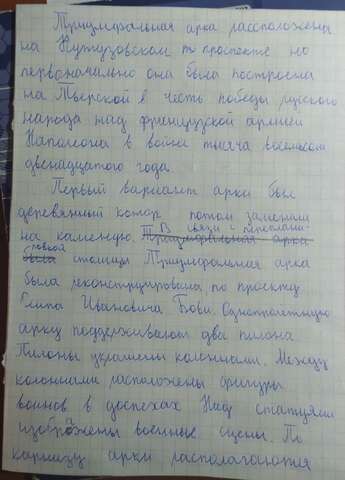 Триумфальная арка рассположена
на Кутузовском проспекте но
первоначально она была построена
на Тверской в честь победы руского
народа над французской армией
Наполеона в войне тысяча восемьсот
двенадцатого года.
Первый вариант арки был
деревянный котор потом заменили
на каменую. В связи с переплани-
ровкой столицы Триумфальная арка
была реконструирована по проекту
Осипа Ивановича Бови. Однопролётную
арку поддерживают два пилона
Пилоны украшены колоннами. Между
колоннами расположены фигуры
воинов в доспехах Над статуями
изображены военные сцены. По
карнизу арки распологаются